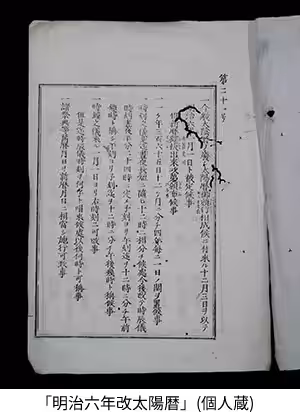 第二十
一今般太陰暦ヲ廃シ太陽暦御頒行相成候ニ付来ル十二月三日ヲ以テ
月一日ト被定候事
暦鏤板出来次第頒布候事
一一ケ年三百六十五日十二ケ月ニ分チ四年毎ニ一日ノ閏ヲ置候事
一時刻ノ儀是迄昼夜長短ニ随ヒ十二時ニ相分チ候処今後改テ時辰儀
時刻昼夜平分二十四時ニ定メ子刻ヨリ午刻迄ヲ十二時ニ分チ午前
幾時ト称シ午刻ヨリ子刻迄ヲ十二時ニ分チ午後幾時ト称候事
一時鐘ノ儀来ル一月一日ヨリ右時刻ニ可改事
但是迄時辰儀時刻ヲ何字ト唱来候処以後何時ト可称事
一諸祭典等旧暦月日ヲ新暦月日ニ相当シ施行可致事
「明治六年改太陽暦」(個人蔵)